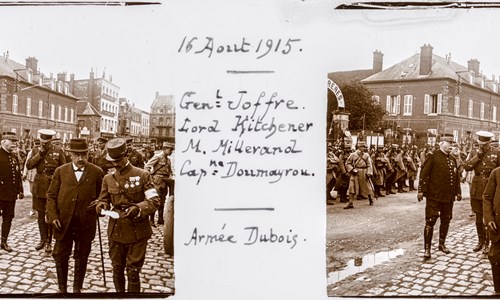 16 Aout 1915.
Genl Joffre.
Lord Kitchener
M. Millerand
Capne Doumayrou.
Armée Dubois.